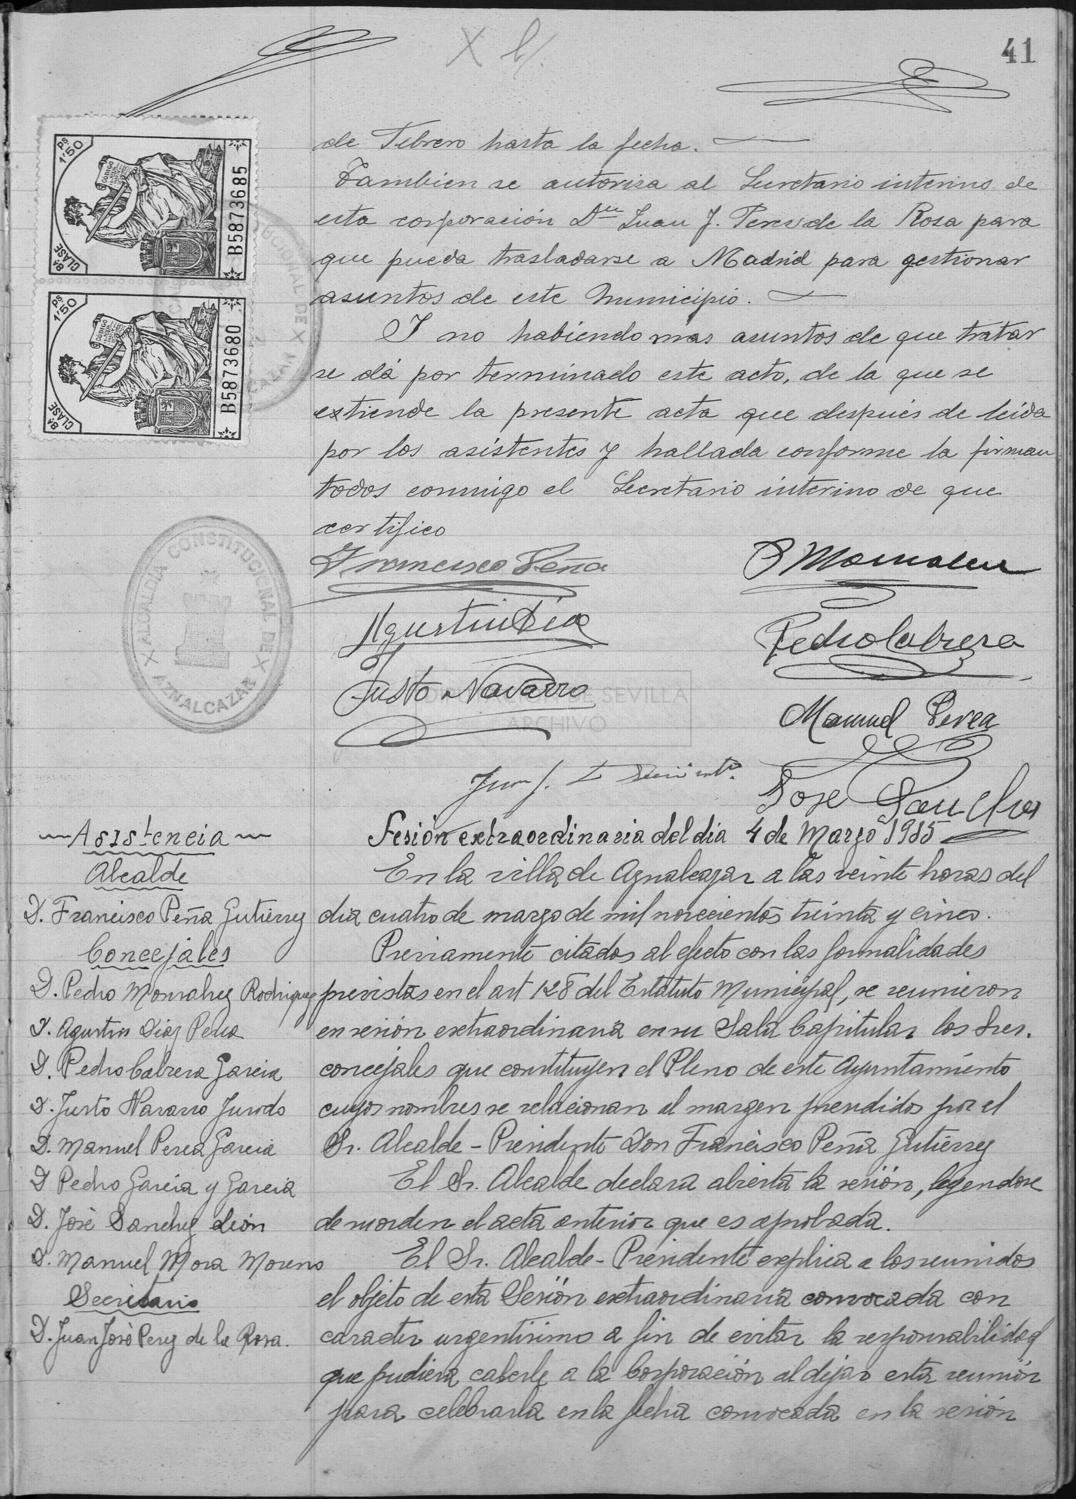 41
X
1'50
Ptas
B5873685
8ª CLASE
1'50
Ptas
B5873680
8ª CLASE
de Febrero hasta la fecha.
Tambien se autorisa al Secretario interino de
esta corporación Dn Juan J. Perez de la Rosa para
que pueda trasladarse a Madrid para gestionar
asuntos de este Municipio.
Y no habiendo mas asuntos de que tratar
se dá por terminado este acto, de la que se
extiende la presente acta que después de leida
por los asistentes y hallada conforme la firman
todos conmigo el Secretario interino de que
certifico
Francisco Peña
P Monsalvez
Agustin Diaz
Pedro Cabrera
Justo Navarro
Manuel Perea
Jose Sanchez
ALCALDIA CONSTITUCIONAL DE
AZNALCAZAR
DIPUTACIÓN DE SEVILLA
ARCHIVO
Asistencia
Alcalde
D. Francisco Peña Gutiérrez
Concejales
D. Pedro Monsalvez Rodriguez
D. Agustin Diaz Peña
D. Pedro Cabrera Garcia
D. Justo Navarro Jurado
D. Manuel Perea Garcia
D Pedro Garcia y Garcia
D. José Sanchez León
D. Manuel Mora Moreno
Secretario
D. Juan José Perez de la Rosa.
Sesión extraordinaria del dia 4 de Marzo 1935
En la villa de Aznalcazar a las veinte horas del
dia cuatro de marzo de mil novecientos treinta y cinco.
Previamente citados al efecto con las formalidades
previstas en el art 128 del Estatuto Municipal, se reunieron
en sesión extraordinaria en su Sala Capitular los Sres.
concejales que constituyen el Pleno de este Ayuntamiento
cuyos nombres se relacionan al margen presididos por el
Sr. Alcalde - Presidente Don Francisco Peña Gutiérrez
El Sr. Alcalde declara abierta la sesión, leyendose
de su orden el acta anterior que es aprobada.
El Sr. Alcalde - Presidente explica a los reunidos
el objeto de esta Sesión extraordinaria convocada con
caracter urgentisimo a fin de evitar la responsabilidad
que pudiera caberle a la Corporación al dejar esta reunión
para celebrarla en la fecha convocada en la sesión